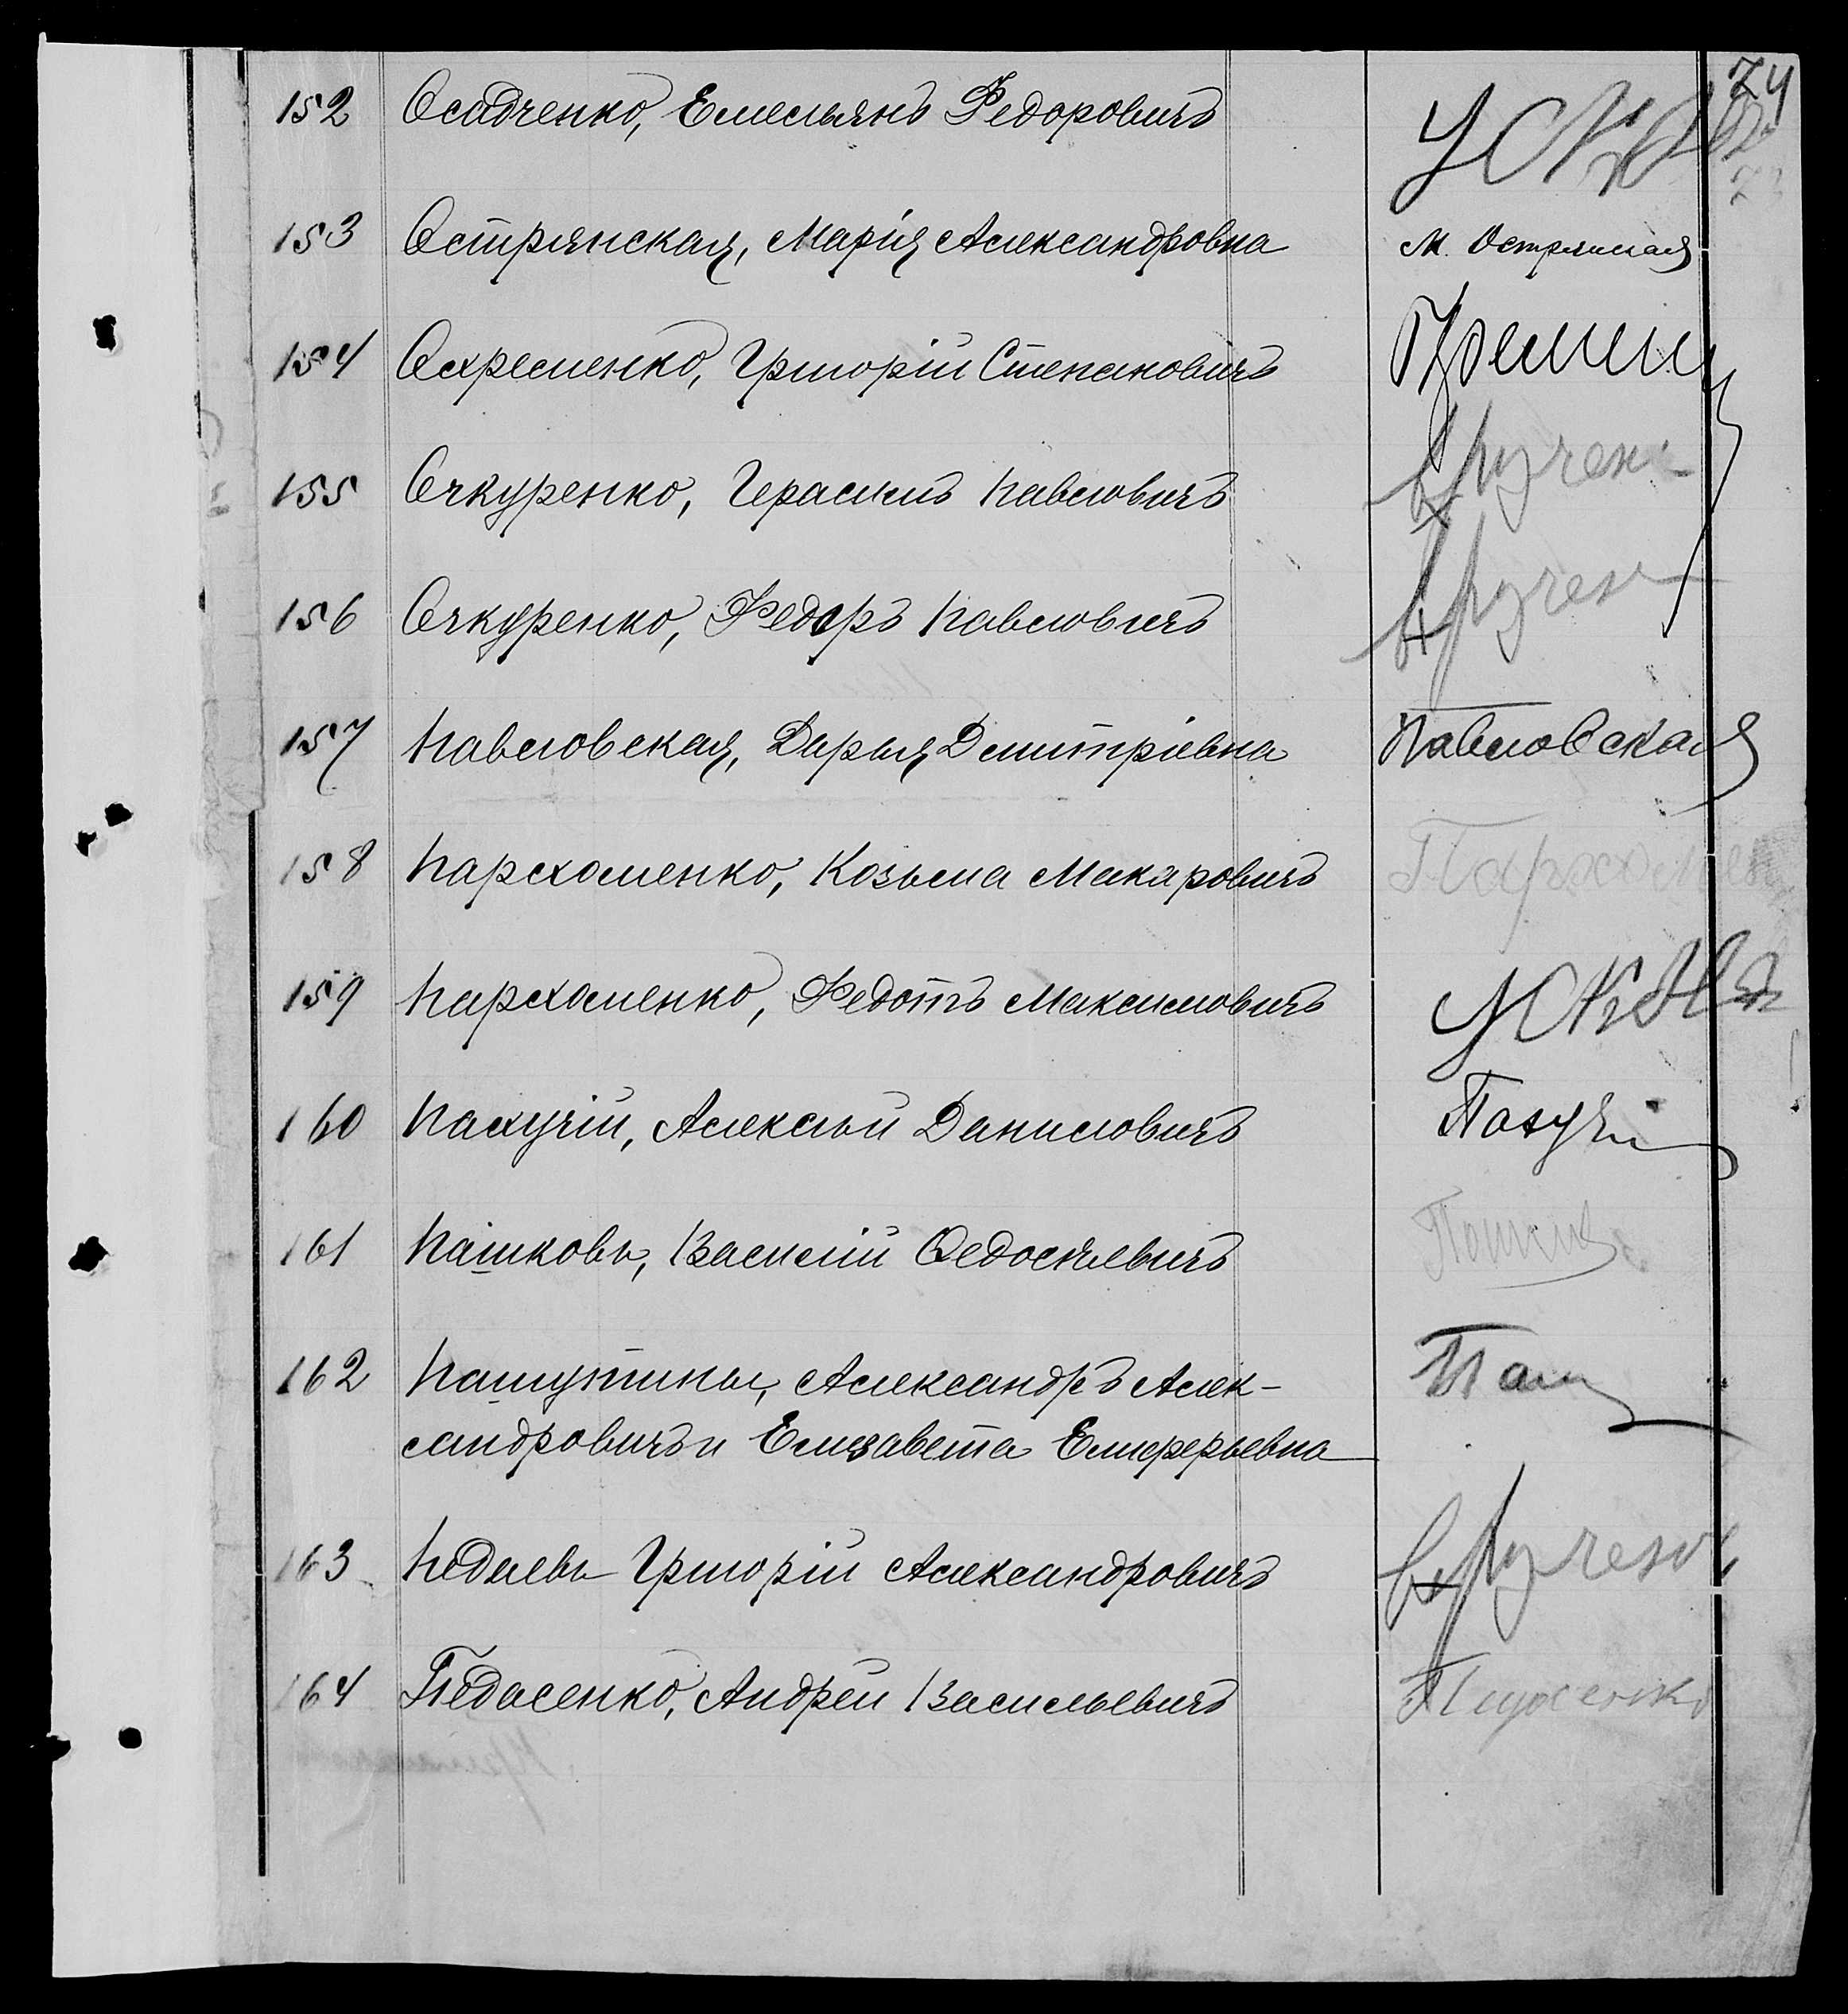 74
152 Осадченко, Емельянъ Федоровичъ
153 Острянская, Марія Александровна М. Острянская
154 Охременко, Григорій Степановичъ
155 Очкуренко, Герасимъ Павловичъ вручен
156 Очкуренко, Федоръ Павловичъ вручен
157 Павловская, Дарья Дмитріевна Павловская
158 Пархоменко, Козьма Макаровичъ Пархомен
159 Пархоменко, Федотъ Максимовичъ
160 Пахучій, Алексѣй Даниловичъ Пахучій
161 Пашковъ, Василій Федосѣевичъ
162 Пашутины, Александръ Алек-
сандровичъ и Елизавета Елиферьевна Паш
163 Педаевъ Григорій Александровичъ вручен
164 Педасенко, Андрей Васильевичъ